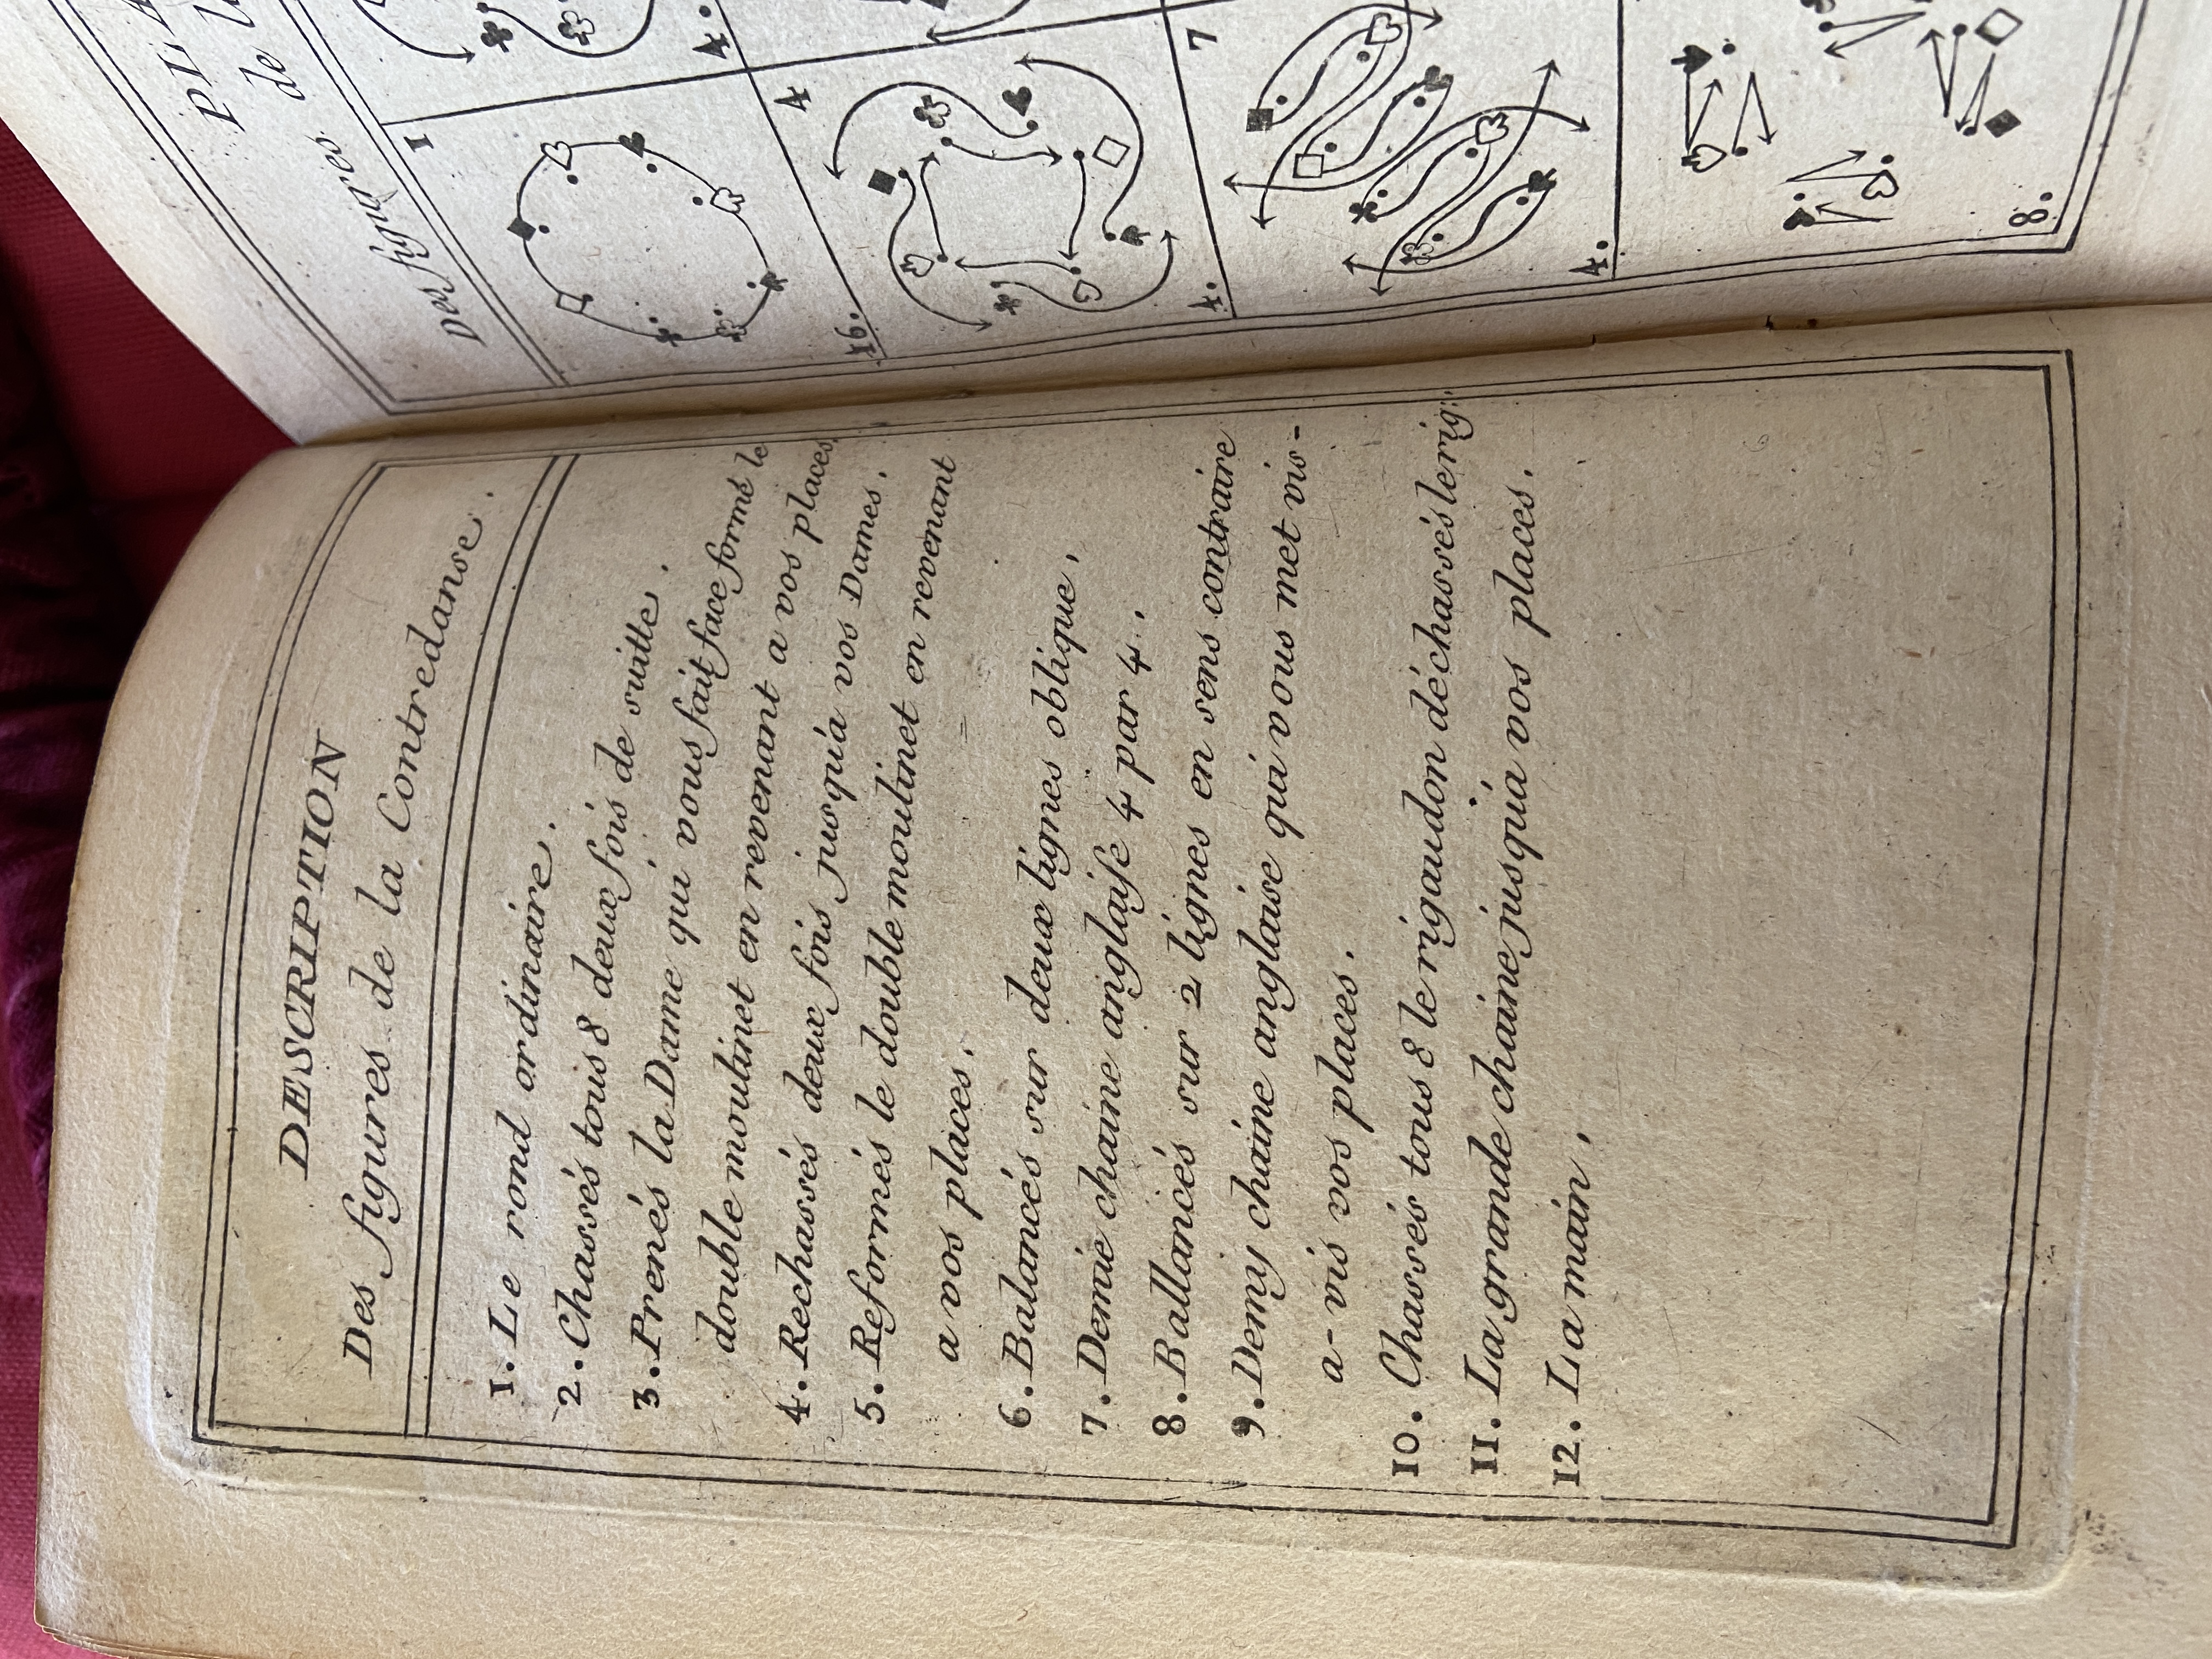 DESCRIPTION
Des figures de la Contredanse.
1. Le rond ordinaire.
2. Chassés tous 8 deux fois de suitte.
3. Prenés la Dame qui vous fait face formé le
double moulinet en revenant a vos places,
4. Rechassés deux fois jusqu'a vos Dames.
5. Reformés le double moulinet en revenant
a vos places.
6. Balancés sur deux lignes oblique.
7. Demie chaine anglaise 4 par 4.
8. Ballancés sur 2 lignes en sens contraire
9. Demy chaine anglaise qui vous met vis-
a-vis vos places.
10. Chassés tous 8 le rigaudon déchassés le rig:
11. La grande chaine jusqu'a vos places.
12. La main.
de
Des figures
1
16.
4.
4
4.
7
4.
8.